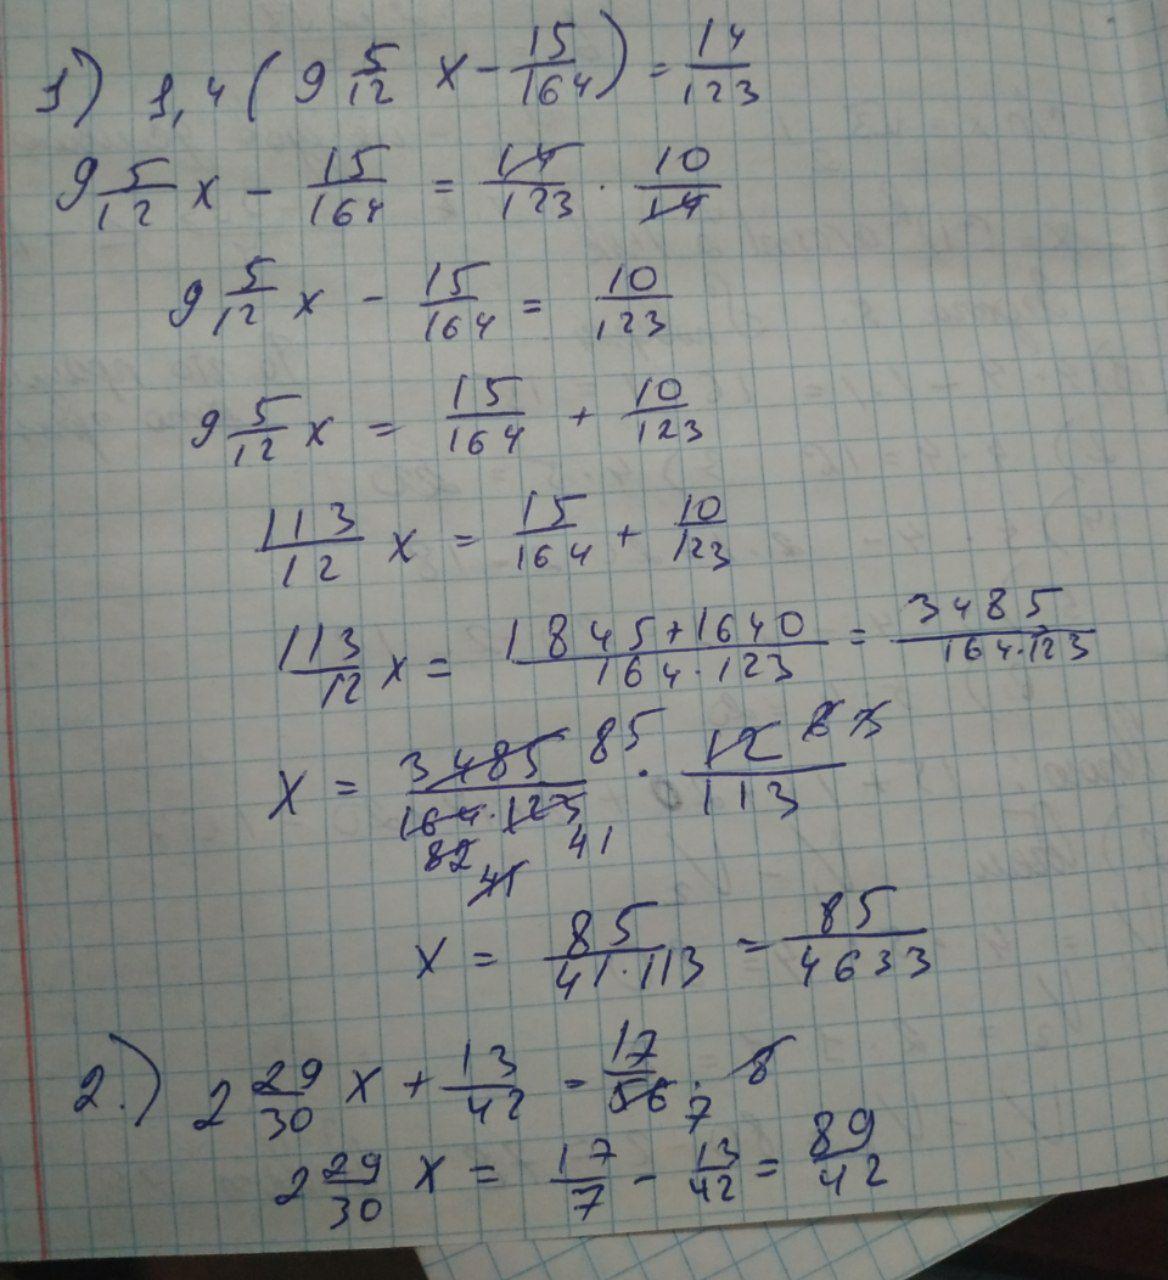 1) 1,4 ( 9 5/12 x - 15/164 ) = 14/123
9 5/12 x - 15/164 = 14/123 · 10/14
9 5/12 x - 15/164 = 10/123
9 5/12 x = 15/164 + 10/123
113/12 x = 15/164 + 10/123
113/12 x = 1845+1640/164·123 = 3485/164·123
x = 3485/164·123 85 · 12/113
82 41 41
x = 85/41·113 = 85/4633
2.) 2 29/30 x + 13/42 = 17/56 7 · 8
2 29/30 x = 17/7 - 13/42 = 89/42